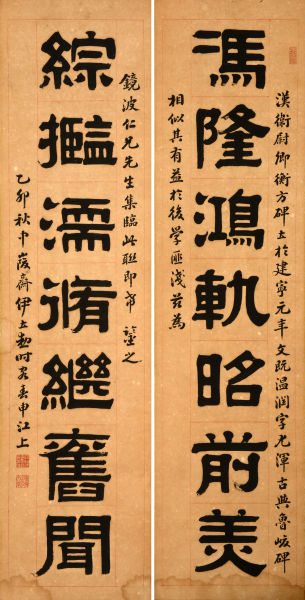 漢衛尉卿衡方碑立於建寧元年文既温潤字尤渾古與魯峻碑
馮隆鴻軌昭前美
相似其有益於後学匪淺茲為
鏡波仁兄先生集臨此聯即希 鑒之
綜㩜濡脩繼舊聞
乙卯秋中峻齋伊立勳時客春申江上